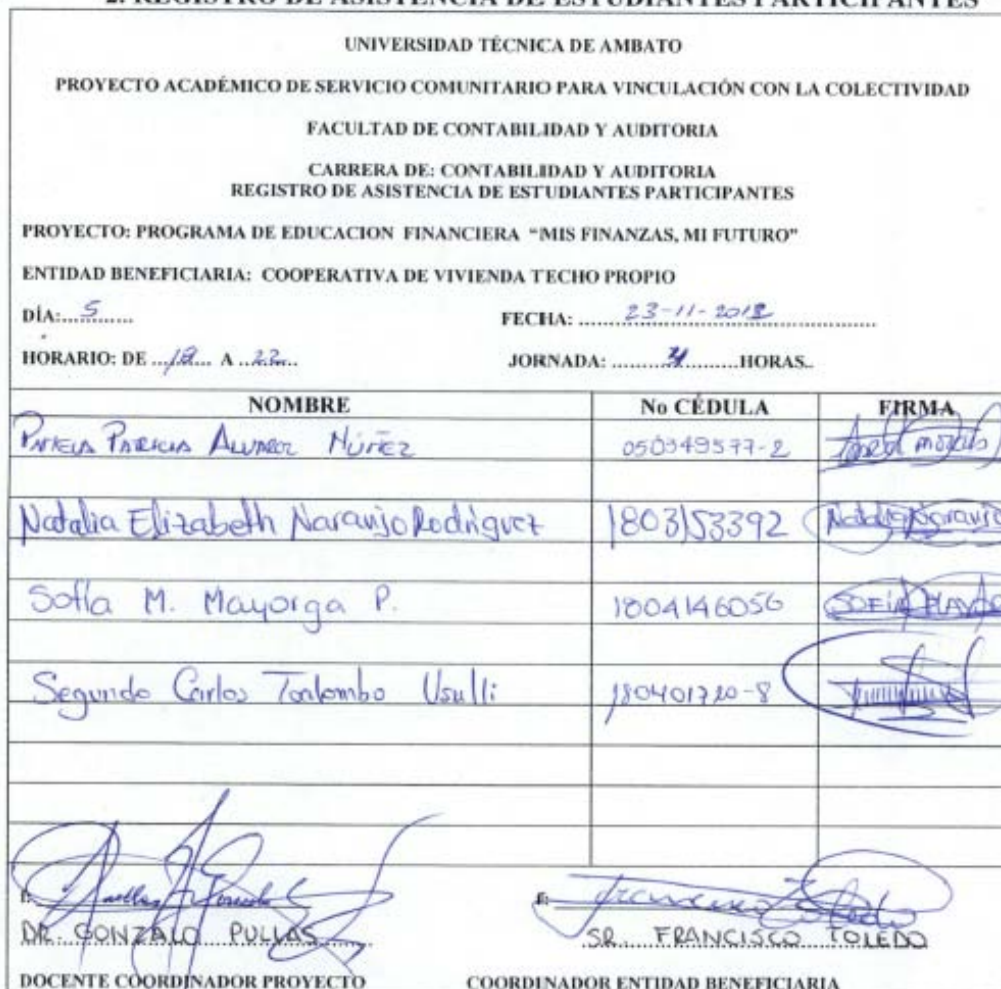 2. REGISTRO DE ASISTENCIA DE ESTUDIANTES PARTICIPANTES
UNIVERSIDAD TÉCNICA DE AMBATO
PROYECTO ACADÉMICO DE SERVICIO COMUNITARIO PARA VINCULACIÓN CON LA COLECTIVIDAD
FACULTAD DE CONTABILIDAD Y AUDITORIA
CARRERA DE: CONTABILIDAD Y AUDITORIA
REGISTRO DE ASISTENCIA DE ESTUDIANTES PARTICIPANTES
PROYECTO: PROGRAMA DE EDUCACION FINANCIERA "MIS FINANZAS, MI FUTURO"
ENTIDAD BENEFICIARIA: COOPERATIVA DE VIVIENDA TECHO PROPIO
DÍA: 5 FECHA: 23-11-
HORARIO: DE A 22 JORNADA: HORAS
NOMBRE No CÉDULA FIRMA
Patricia Núñez
Natalia Elizabeth Naranjo Rodríguez 1803153392 Natalia Naranjo
Sofía M. Mayorga P. 1804146056 SOFIA
Segundo Carlos 180401720-8
DR. GONZALO PULLAS SR. FRANCISCO TOLEDO
DOCENTE COORDINADOR PROYECTO COORDINADOR ENTIDAD BENEFICIARIA